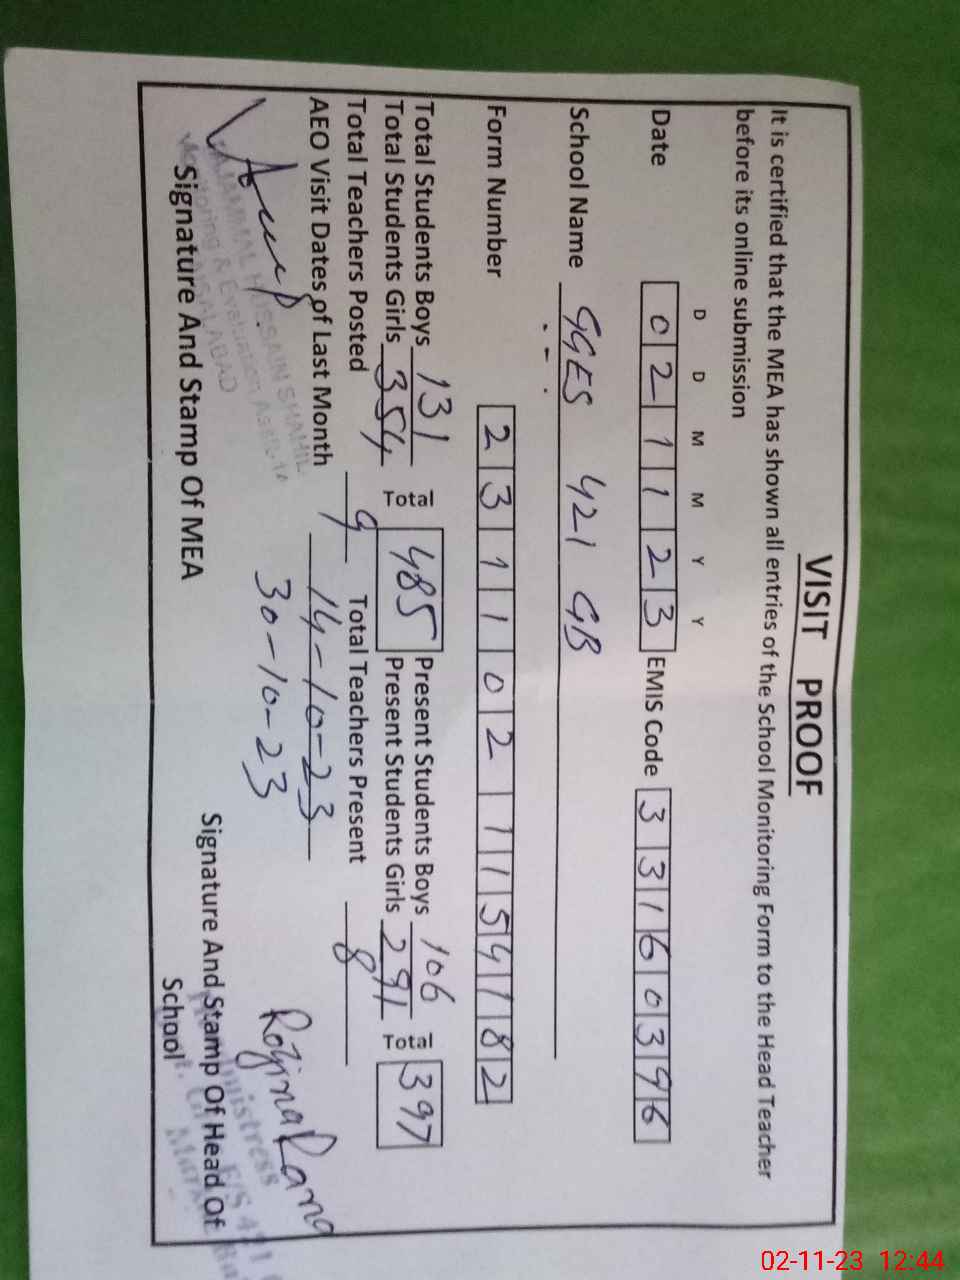 VISIT PROOF
It is certified that the MEA has shown all entries of the School Monitoring Form to the Head Teacher
before its online submission
D D M M Y Y
Date 0 2 1 1 2 3 EMIS Code 3 3 1 6 0 3 9 6
School Name GGES 421 GB
Form Number 2 3 1 1 0 2 1 1 5 4 1 8 2
Total Students Boys 131 Total 485 Present Students Boys 106 Total 397
Total Students Girls 354 Present Students Girls 291
Total Teachers Posted 9 Total Teachers Present 8
AEO Visit Dates of Last Month 14-10-23
30-10-23
HUSSAIN SHAHIL
Monitoring & Evaluation
FAISALABAD
Rozina Rana
Signature And Stamp Of MEA
Signature And Stamp Of Head Of
School
02-11-23 12:44